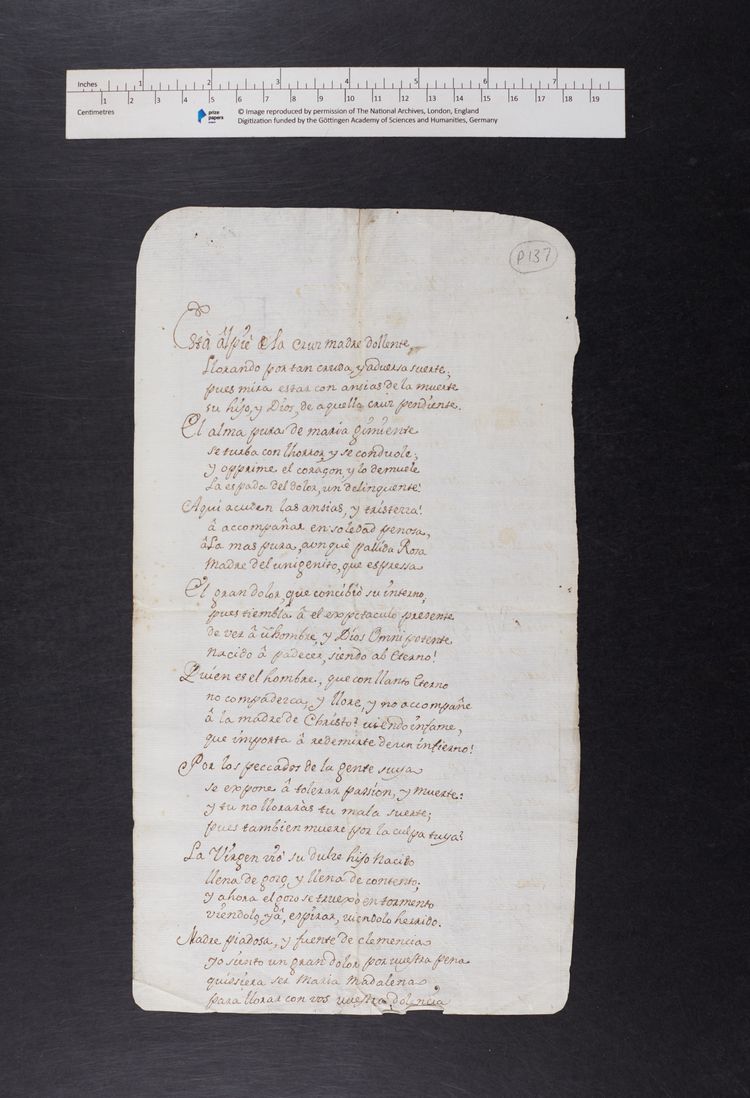 Inches 1 2 3 4 5 6 7
1 2 3 4 5 6 7 8 9 10 11 12 13 14 15 16 17 18 19
Centimetres
prize papers
© Image reproduced by permission of The National Archives, London, England
Digitization funded by the Göttingen Academy of Sciences and Humanities, Germany
P137
Està âl piè de la Cruz madre dollente,
Llorando por tan cruda, y adversa suerte;
pues mira estar con ansias de la muerte
su hijo, y Dios, de aquella cruz pendiente.
El alma pura de maria gimiente
se turba con lhorror, y se conduole;
y opprime el coraçon, y lo demuele
La espada del dolor, un delinquente!
Aqui acuden las ansias, y tristezza!
â accompañar en soledad penosa,
âLa mas pura, aunquè pallida Rosa
Madre del unigenito, que espressa
El gran dolor, que concibiò su interno,
pues tiembla â el expectaculo presente
de ver â ũ hombre, y Dios Omnipotente
nacido â padecer, siendo ab Eterno!
Quien es el hombre, que con llanto Eterno
no compadezca, y llore, y no accompañe
â la madre de Christo? viendo infame,
que importa â redemirte de un infierno!
Por los peccados de la gente suya
se expone â tolerar passion, y muerte:
y tu no lloraràs tu mala suerte;
pues tambien muere por la culpa tuya?
La Virgen viò su dulze hijo Nacido
llena de gozo, y llena de contento;
y ahora el gozo se truexo en tormento
viendolo, yâ, espirar, viendolo herrido.
Madre piadosa, y fuente de clemencia
yo siento un gran dolor por vuestra pena
quissiera ser Maria Madalena
para llorar con vos vuestra dolencia